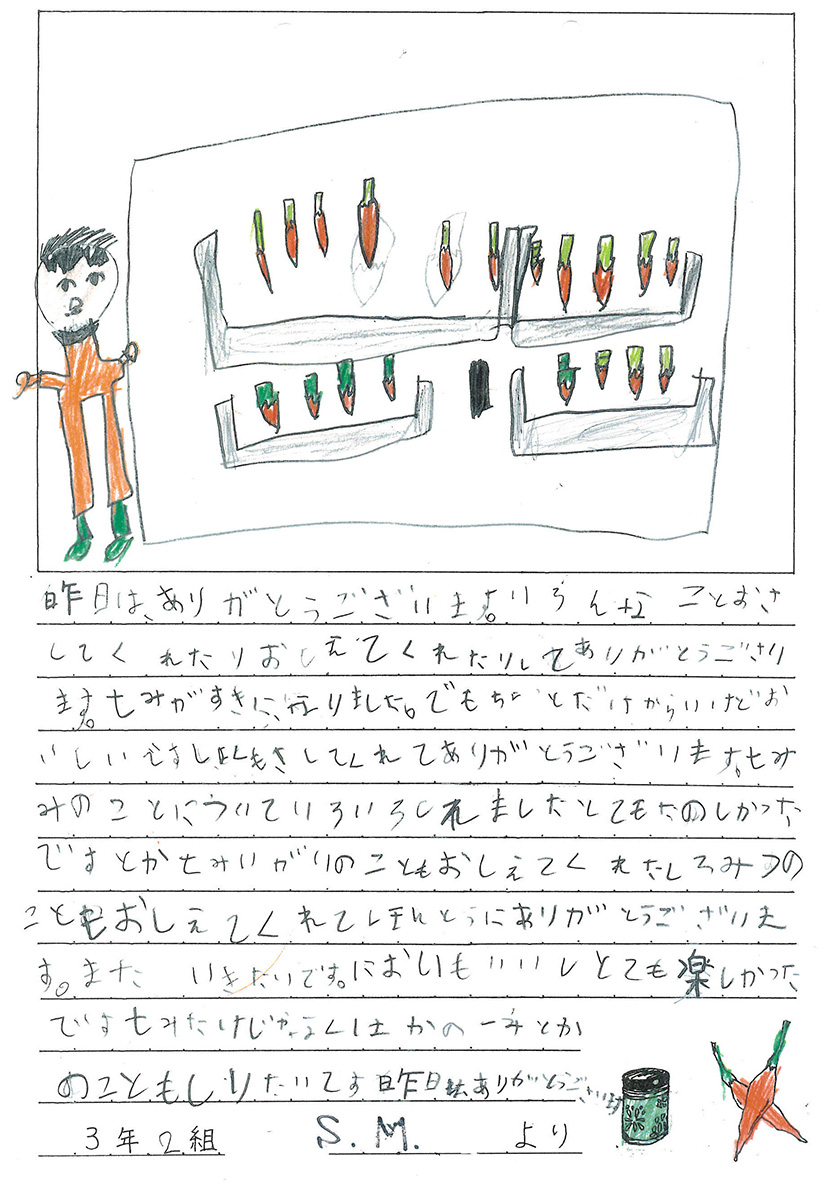 昨日は、ありがとうございます。いろんなことおさ
してくれたりおしえてくれたりしてありがとうござり
ます。七みがすきに、なりました。でもちょとだけからいけどお
いしいですしもさしてくれてありがとうございます。七み
みのことについていろいろしれましたとしてもたのしかった
ですとか七みいがいのこともおしえてくれたしろみつの
こともおしえてくれてほんとうにありがとうございま
す。また いきたいです。においもいいしとても楽しかった
です七みたけじゃなくほかの一みとか
のこともしりたいてす昨日はありがとうございます
3年2組 S.M. より